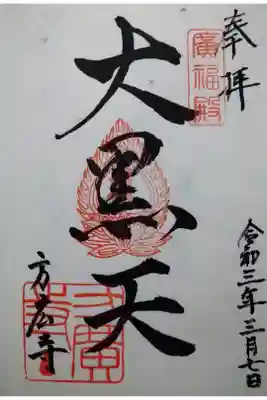 奉拝
廣福殿
大黒天
令和三年三月七日
方広寺
方廣寺